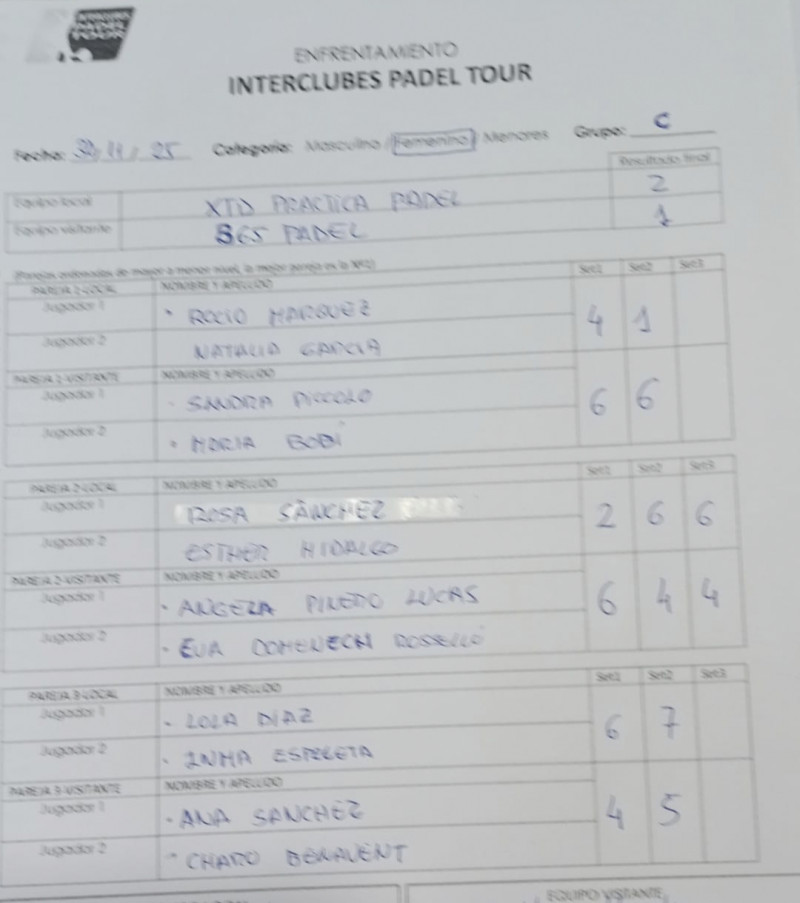 ENFRENTAMIENTO
INTERCLUBES PADEL TOUR
Fecha: 30/11/25 Categoria: Masculino / Femenino / Menores Grupo: C
Resultado final
Equipo local XTD PRACTICA PADEL 2
Equipo visitante 365 PADEL 1
(Parejas ordenadas de mayor a menor nivel, la mejor pareja es la Nº1)
PAREJA 1-LOCAL NOMBRE Y APELLIDO Set1 Set2 Set3
Jugador 1 ROCIO MARQUEZ 4 1
Jugador 2 NATALIA GARCIA
PAREJA 1-VISITANTE NOMBRE Y APELLIDO
Jugador 1 SANDRA PICCOLO 6 6
Jugador 2 MARIA BOBÍ
PAREJA 2-LOCAL NOMBRE Y APELLIDO Set1 Set2 Set3
Jugador 1 ROSA SÁNCHEZ 2 6 6
Jugador 2 ESTHER HIDALGO
PAREJA 2-VISITANTE NOMBRE Y APELLIDO
Jugador 1 ANGELA PINEDO LUCAS 6 4 4
Jugador 2 EVA DOMENECH ROSSELLÓ
PAREJA 3-LOCAL NOMBRE Y APELLIDO Set1 Set2 Set3
Jugador 1 LOLA DIAZ 6 7
Jugador 2 INMA ESPELETA
PAREJA 3-VISITANTE NOMBRE Y APELLIDO
Jugador 1 ANA SANCHEZ 4 5
Jugador 2 CHARO BENAVENT
EQUIPO VISITANTE